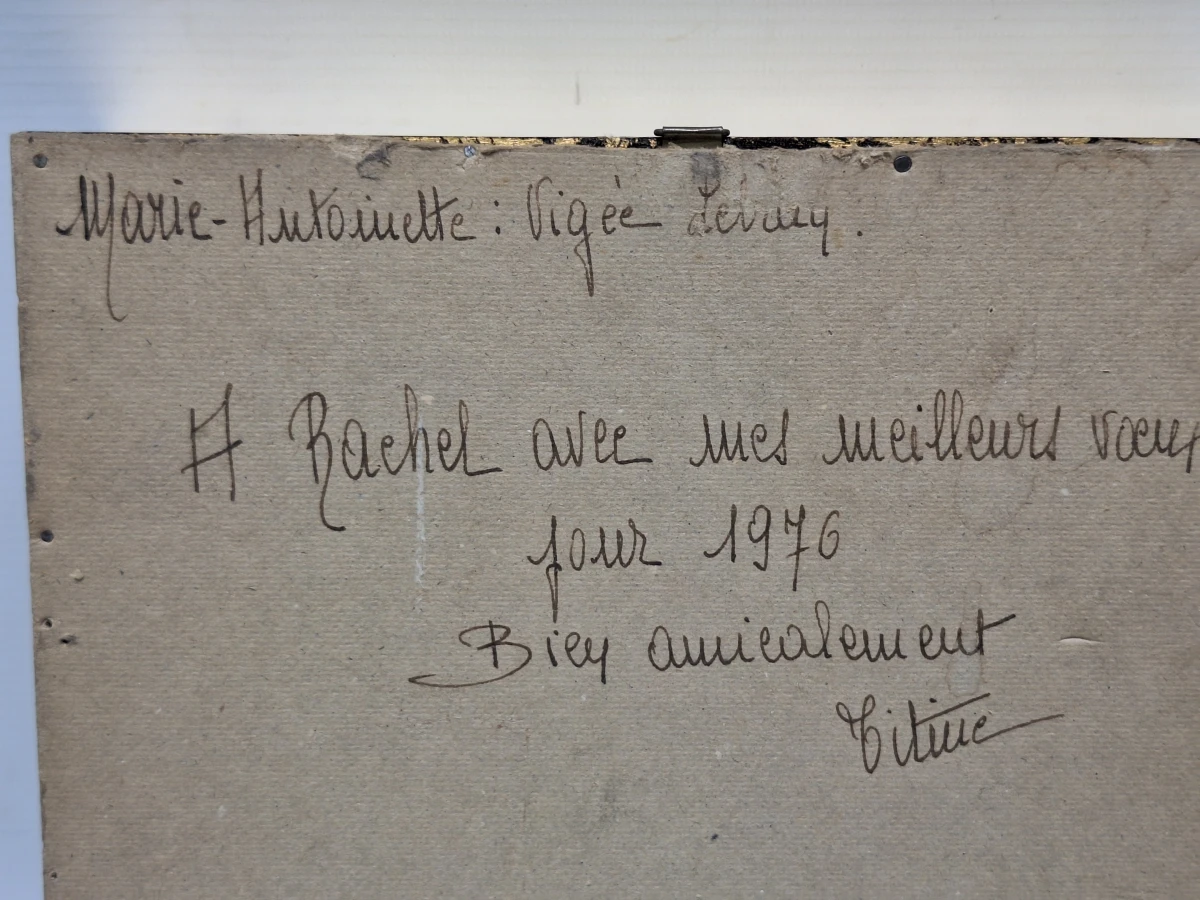 Marie-Antoinette : Vigée Lebrun.
A Rachel avec mes meilleurs vœux
pour 1976
Bien amicalement
Titine